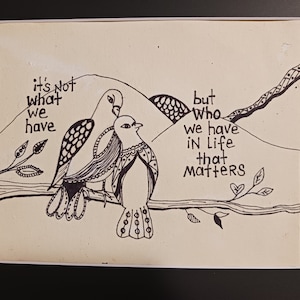 it's Not
what
we
have
but
Who
we have
in Life
that
matters